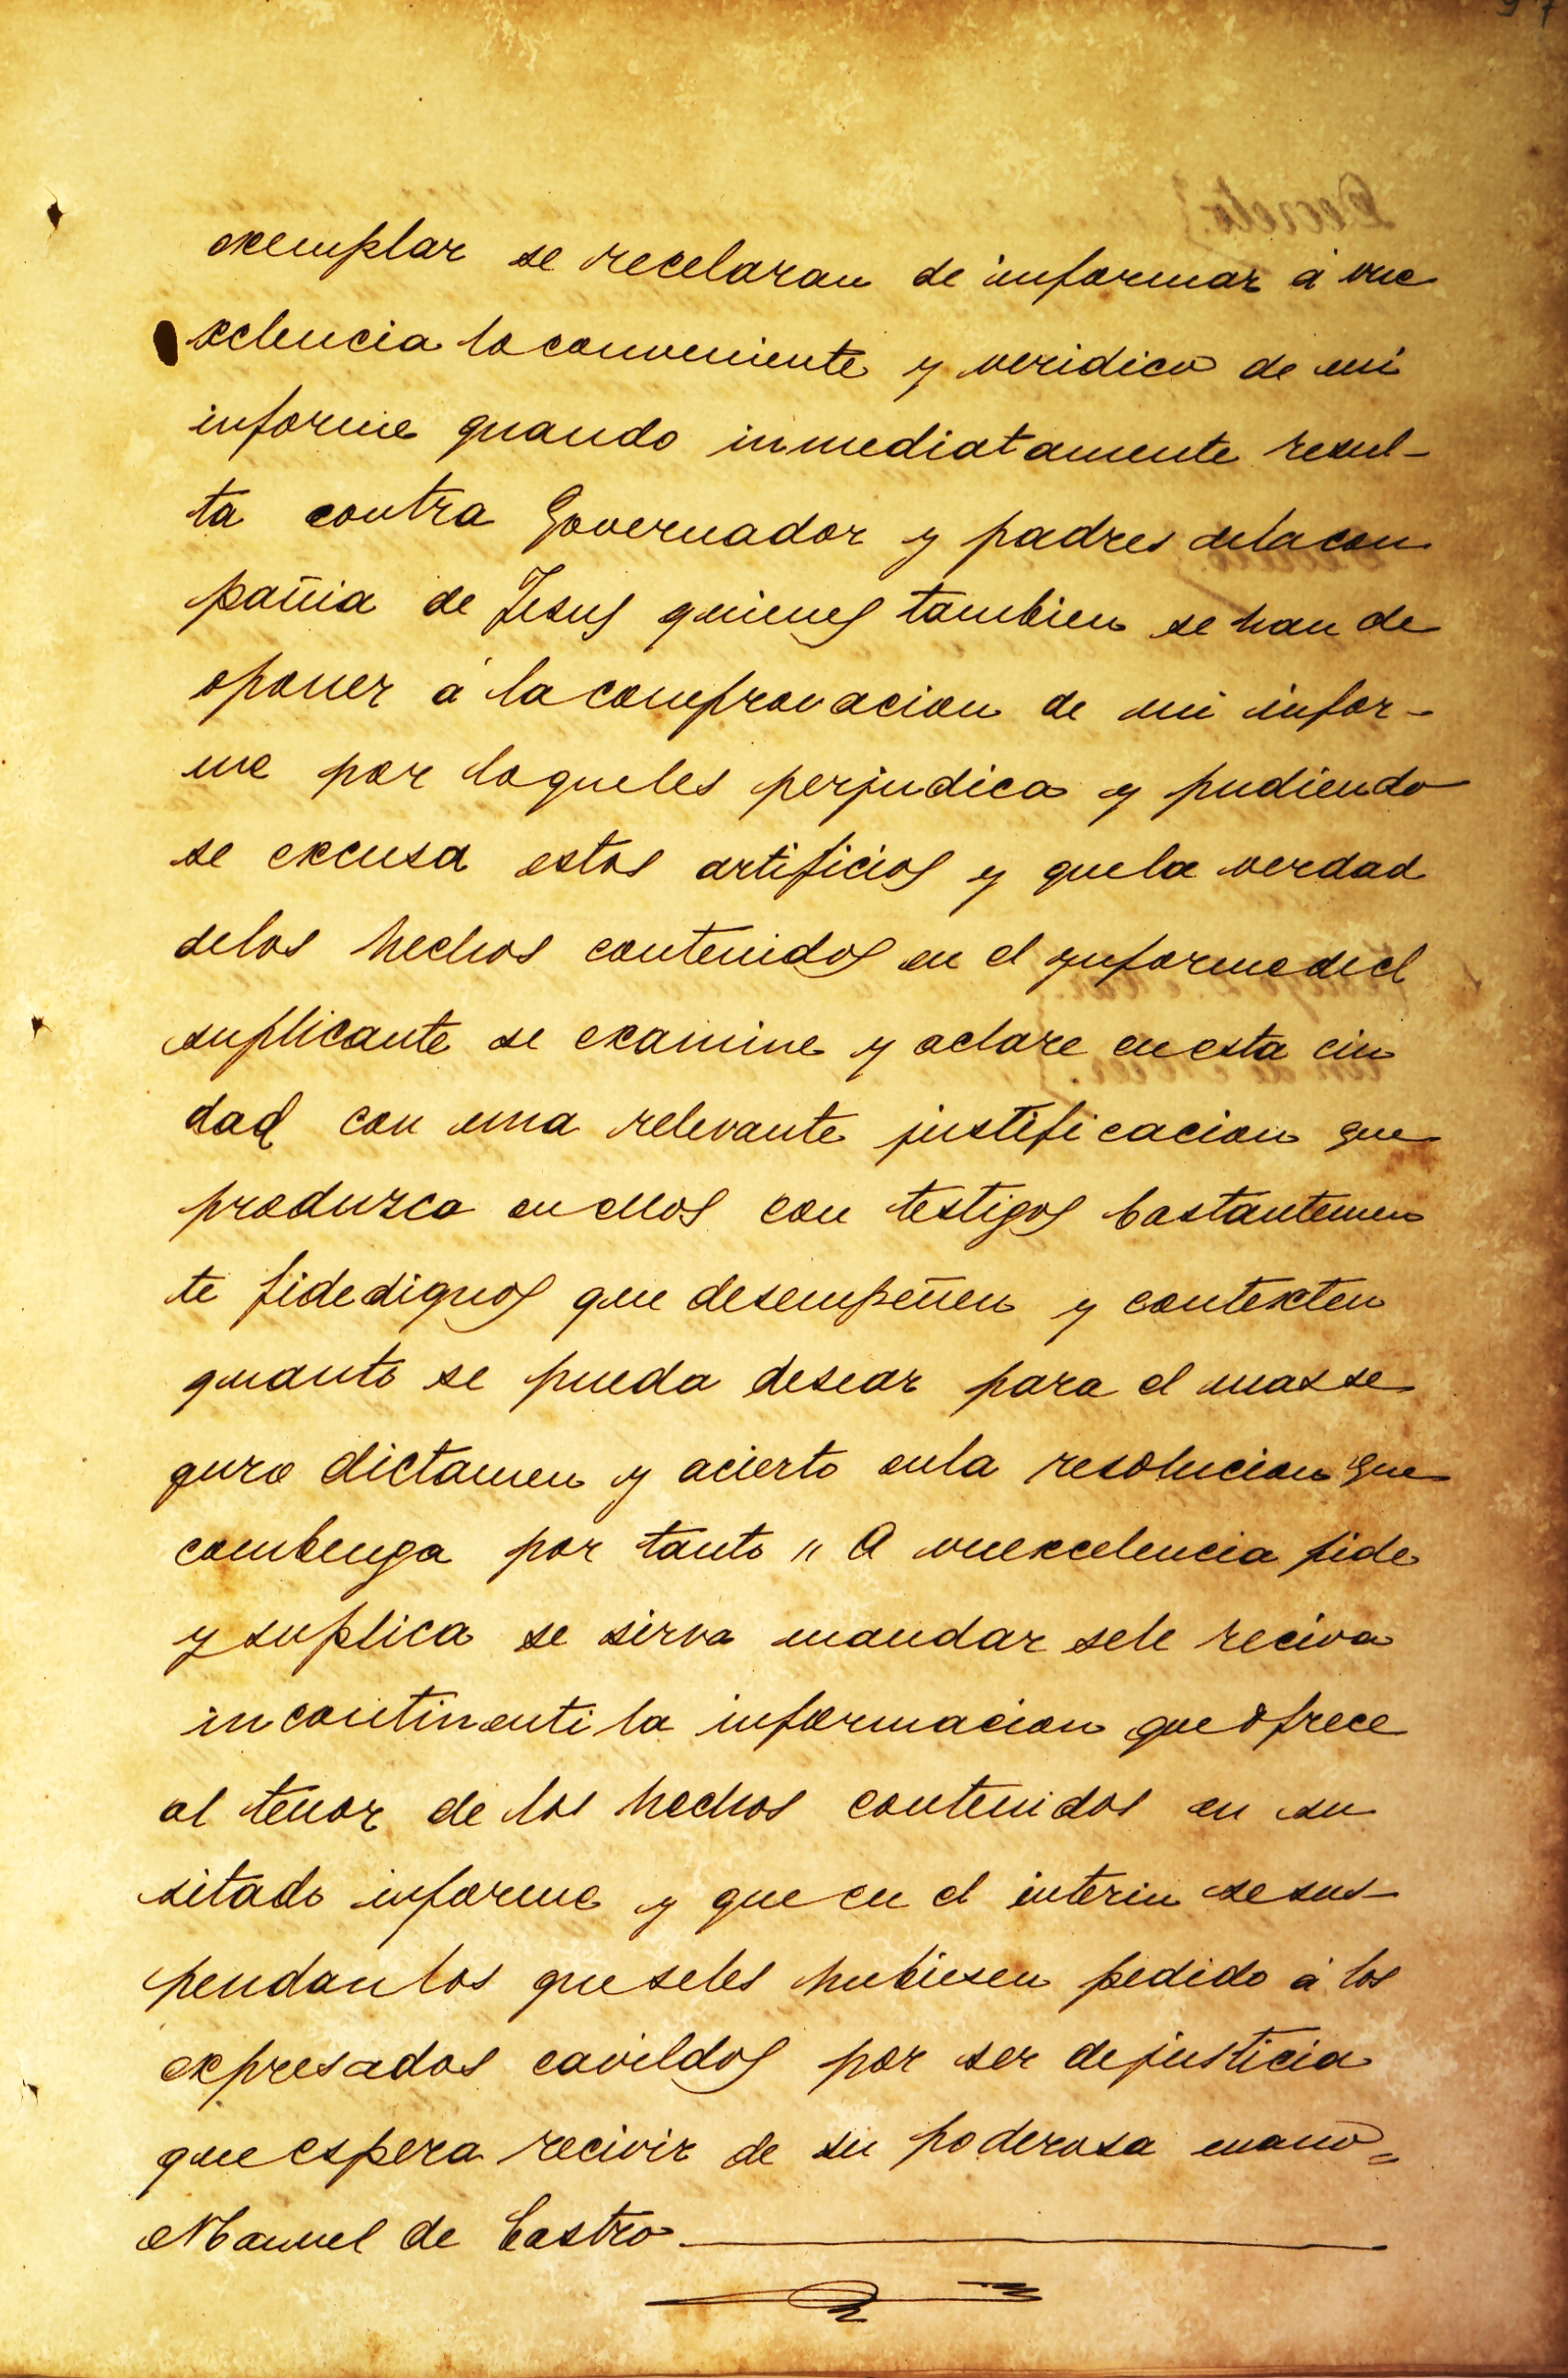 exemplar se recelaran de informar á vue
xelencia lo conveniente y veridico de mi
informe quando inmediatamente resul-
ta contra Governador y padres delacon
pañia de Jesus quienes tambien se han de
oponer á la comprovacion de mi infor-
me por loqueles perjudica y pudiendo
se excusa estos artificios y quela verdad
delos hechos contenidos en el ynforme del
suplicante se examine y aclare en esta ciu
dad con una relevante justificacion que
produzca en ellos con testigos bastantemen
te fidedignos que desempeñen y contexten
quanto se pueda desear para el mas se
guro dictamen y acierto enla resolucion que
combenga por tanto " A vuexcelencia pide
y suplica se sirva mandar sele reciva
incontinenti la informacion que ofrece
al tenor de los hechos contenidos en su
sitado informe y que en el interin se sus-
pendan los que seles hubiesen pedido á los
expresados cavildos por ser de justicia
que espera recivir de su poderosa mano=
Manuel de Castro